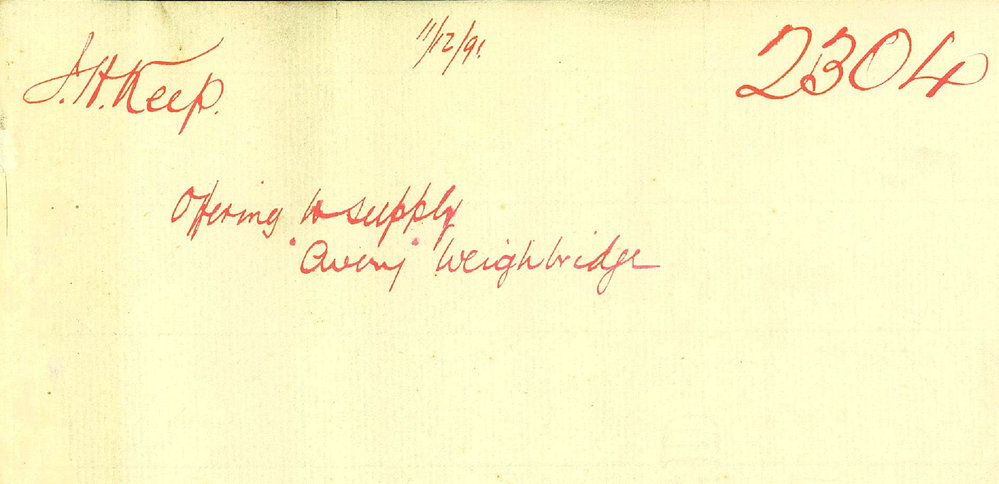 J.H. Keep.
11/12/91.
2304
Offering to supply
"Avery" Weighbridge